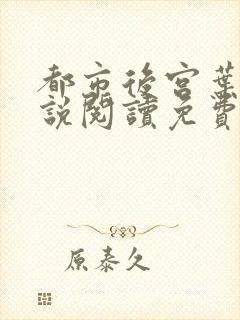 都市後宮葉
說閱讀免費
原泰久